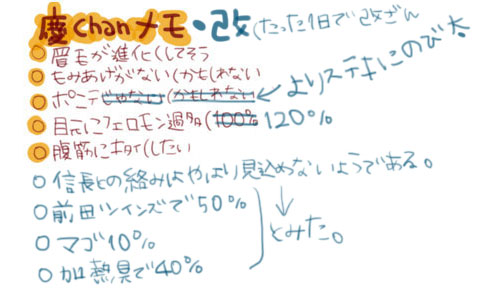 慶Chanメモ・改(たった1日で改ざん
眉毛が進化してそう
もみあげがない(かもしれない
ポニテじゃない(かもしれない ← よりステキにのび太
目元にフェロモン過多(100% 120%
腹筋にキタイしたい
信長との絡みはやはり見込めないようである。
前田ツインズで50%
マゴ10%
加熱具で40%
↓
とみた。